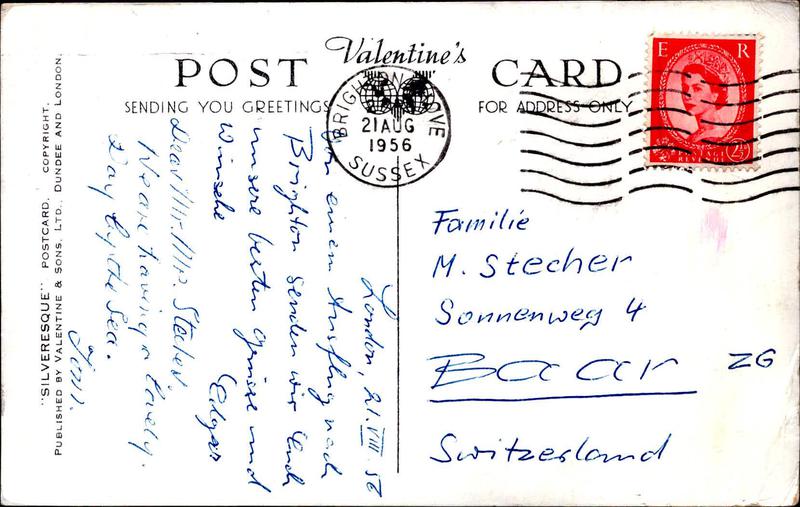 Valentine's
POST CARD
SENDING YOU GREETINGS
FOR ADDRESS ONLY
BRIGHTON HOVE
21 AUG
1956
SUSSEX
E R
POSTAGE
REVENUE
2½
London, 21. VIII. 56
Von einem Ausflug nach
Brighton senden wir Euch
unsere besten Grüsse und
Wünsche
Edgar
Dear Mr. Mrs Stecher
We are having a lovely
Day by the Sea.
Familie
M. Stecher
Sonnenweg 4
Baar ZG
Switzerland
"SILVERESQUE" POSTCARD. COPYRIGHT.
PUBLISHED BY VALENTINE & SONS, LTD., DUNDEE AND LONDON.